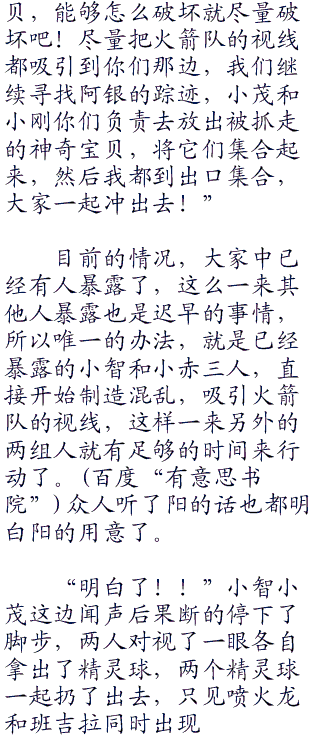 贝，能够怎么破坏就尽量破
坏吧！尽量把火箭队的视线
都吸引到你们那边，我们继
续寻找阿银的踪迹，小茂和
小刚你们负责去放出被抓走
的神奇宝贝，将它们集合起
来，然后我都到出口集合，
大家一起冲出去！”
目前的情况，大家中已
经有人暴露了，这么一来其
他人暴露也是迟早的事情，
所以唯一的办法，就是已经
暴露的小智和小赤三人，直
接开始制造混乱，吸引火箭
队的视线，这样一来另外的
两组人就有足够的时间来行
动了。(百度“有意思书
院”)众人听了阳的话也都明
白阳的用意了。
“明白了！！”小智小
茂这边闻声后果断的停下了
脚步，两人对视了一眼各自
拿出了精灵球，两个精灵球
一起扔了出去，只见喷火龙
和班吉拉同时出现